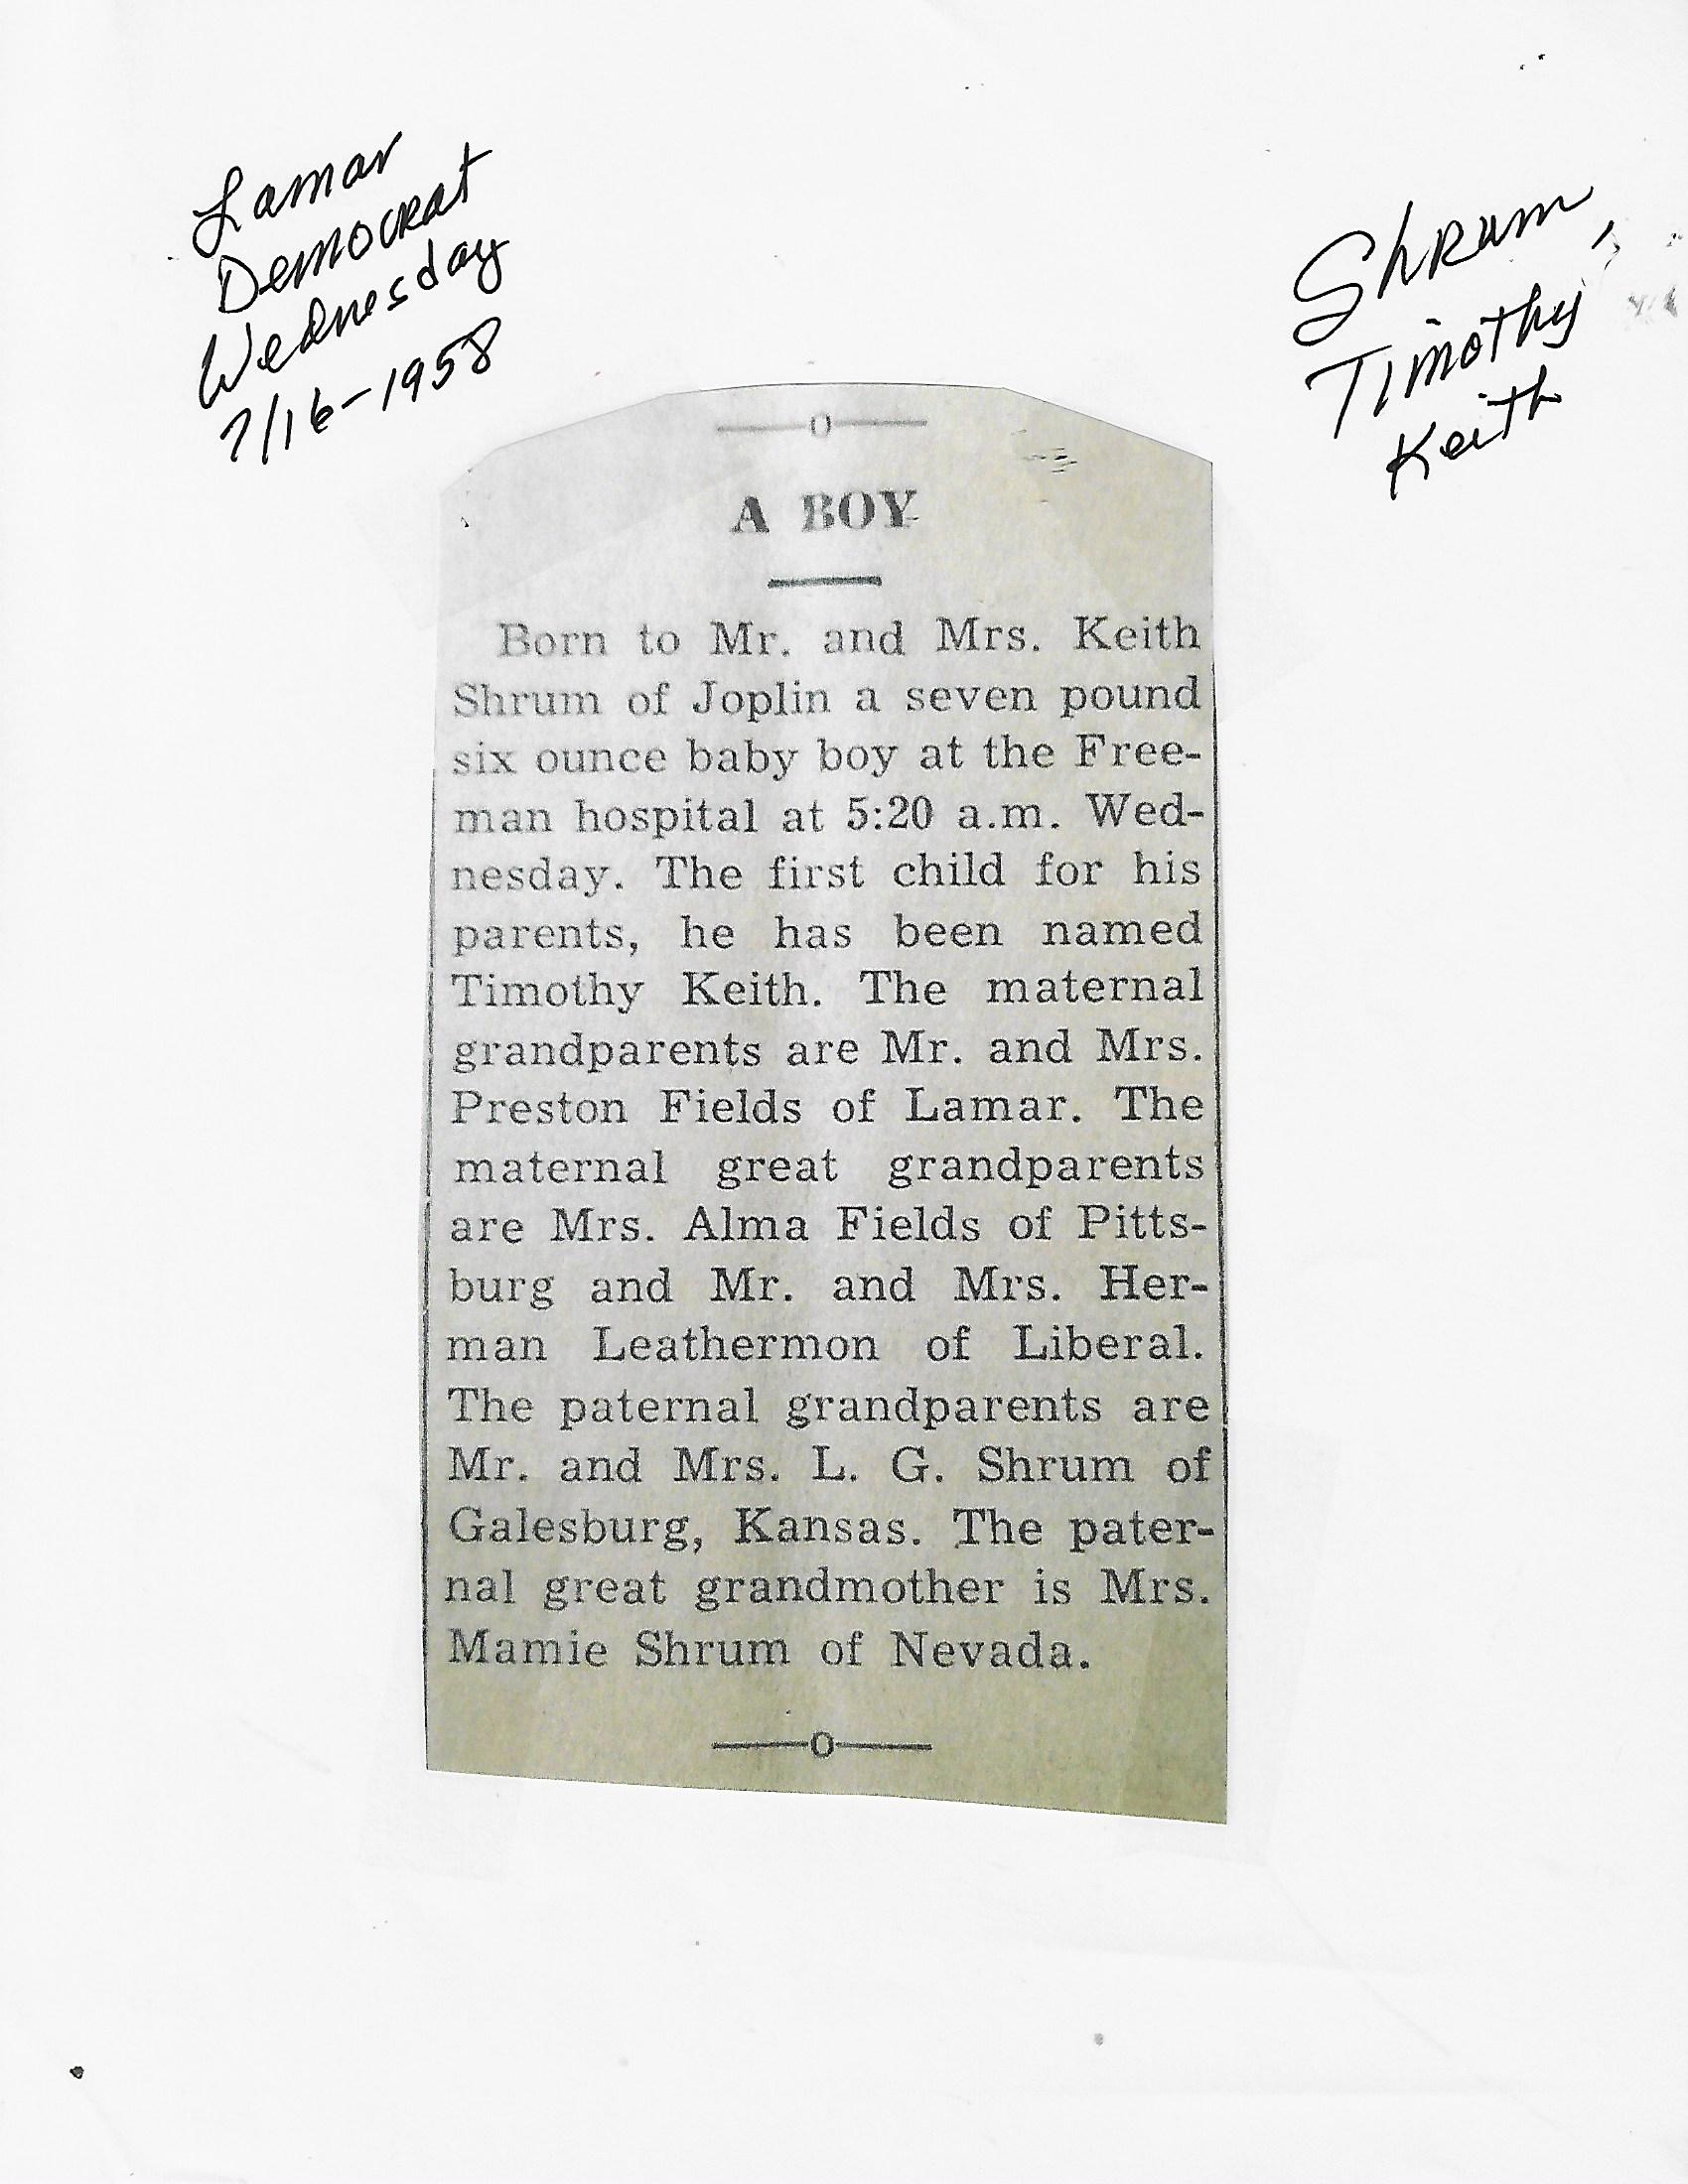 Lamar
Democrat
Wednesday
7/16-1958
Shrum,
Timothy
Keith
—o—
A BOY
Born to Mr. and Mrs. Keith
Shrum of Joplin a seven pound
six ounce baby boy at the Free-
man hospital at 5:20 a.m. Wed-
nesday. The first child for his
parents, he has been named
Timothy Keith. The maternal
grandparents are Mr. and Mrs.
Preston Fields of Lamar. The
maternal great grandparents
are Mrs. Alma Fields of Pitts-
burg and Mr. and Mrs. Her-
man Leathermon of Liberal.
The paternal grandparents are
Mr. and Mrs. L. G. Shrum of
Galesburg, Kansas. The pater-
nal great grandmother is Mrs.
Mamie Shrum of Nevada.
—o—